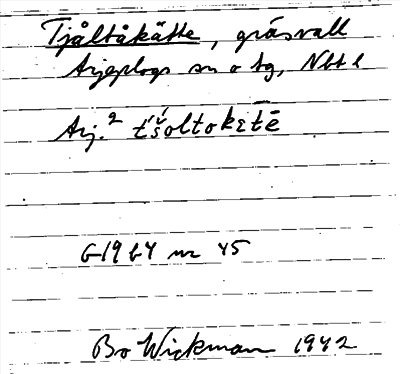 Tjåltåkätte, gräsvall
Arjeplogs sn o tg, Nbt l
Arj.² t́š́oltokεt̄ē
G1964 nr 45
Bo Wickman 1942